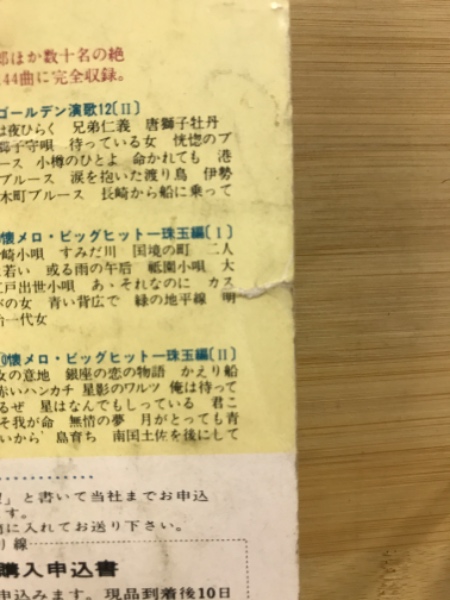 郎ほか数十名の絶
44曲に完全収録。
ゴールデン演歌12〔II〕
は夜ひらく 兄弟仁義 唐獅子牡丹
子守唄 待っている女 恍惚のブ
ース 小樽のひとよ 命かれても 港
ブルース 涙を抱いた渡り鳥 伊勢
木町ブルース 長崎から船に乗って
懐メロ・ビッグヒット一珠玉編〔I〕
崎小唄 すみだ川 国境の町 二人
若い 或る雨の午后 祗園小唄 大
江戸出世小唄 あゝそれなのに カス
の女 青い背広で 緑の地平線 明
治一代女
懐メロ・ビッグヒット一珠玉編〔II〕
女の意地 銀座の恋の物語 かえり船
赤いハンカチ 星影のワルツ 俺は待って
るぜ 星はなんでもしっている 君こ
そ我が命 無情の夢 月がとっても青
いから 島育ち 南国土佐を後にして
」と書いて当社までお申込
す。
に入れてお送り下さい。
り線
購入申込書
申込みます。現品到着後10日